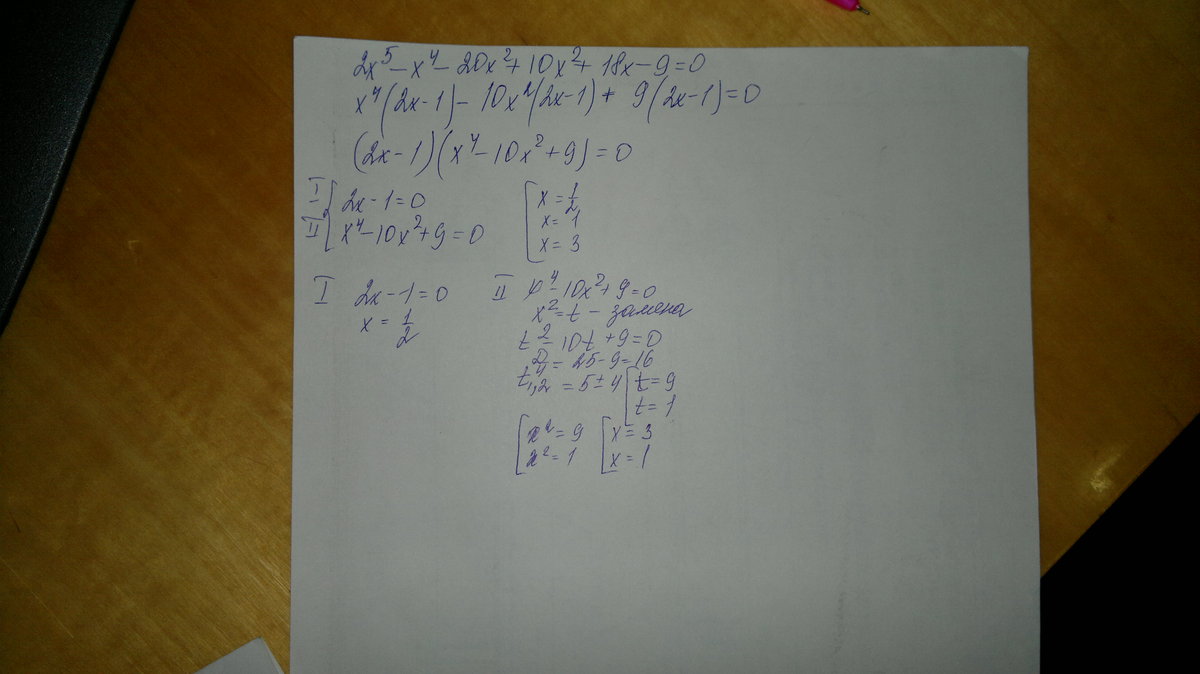 2x⁵ - x⁴ - 20x² + 10x² + 18x - 9 = 0
x⁴(2x-1) - 10x²(2x-1) + 9(2x-1) = 0
(2x-1)(x⁴-10x²+9) = 0
I [ 2x-1=0
II [ x⁴-10x²+9=0
[ x = 1/2
x = 1
x = 3
I 2x-1=0
x = 1/2
II x⁴-10x²+9=0
x²=t - замена
t²-10t+9=0
D/4 = 25-9=16
t₁,₂ = 5±4 [ t=9
t=1
[ x²=9 [ x=3
x²=1 x=1